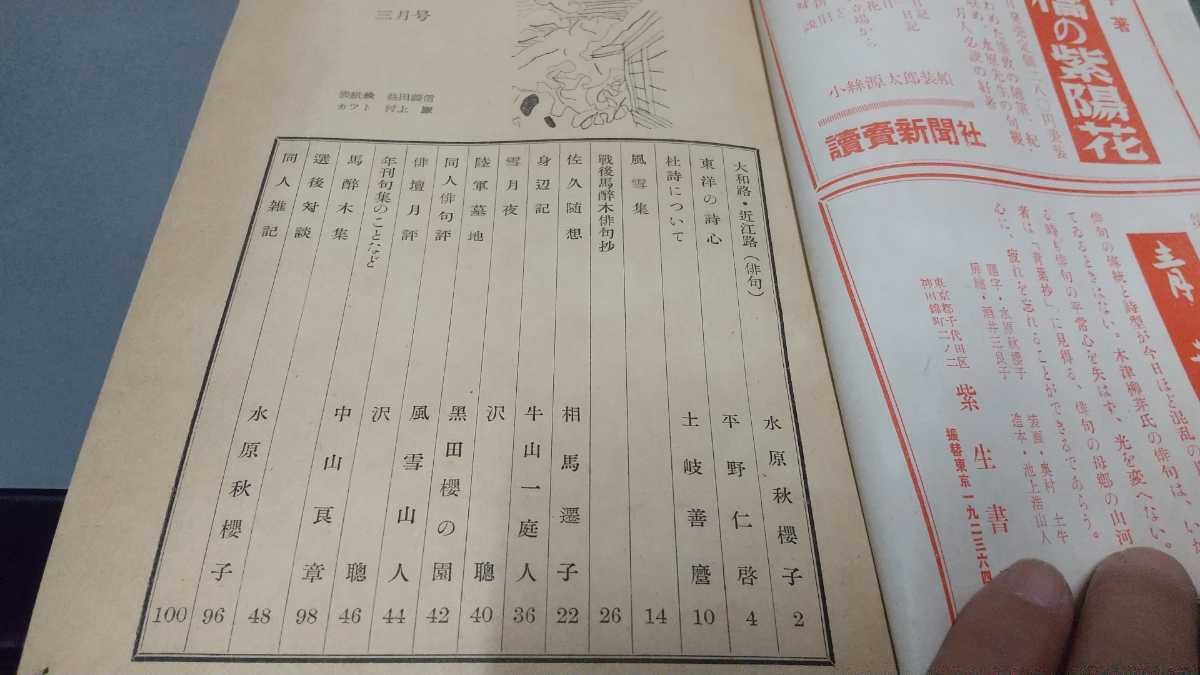 三月号
カット 村上 巌
大和路・近江路（俳句） 水原秋櫻子 2
東洋の詩心 平野仁啓 4
杜詩について 土岐善麿 10
風雪集 14
戦後馬醉木俳句抄 26
佐久随想 相馬遷子 22
身辺記 牛山一庭人 36
雪月夜 沢 聰 40
陸軍墓地 黒田櫻の園 42
同人俳句評 風雪山人 44
俳壇月評 沢 聰 46
年刊句集のことなど 中山良章 98
馬醉木集 48
選後対談 水原秋櫻子 96
同人雑記 100
著
の紫陽花
小絲源太郎装幀
讀賣新聞社
俳句の傳統と詩型が今日ほど混乱の
てゐるときはない。木津柳芽氏の俳句は、いか
る時も俳句の平常心を失はず、光を変へない。
者は「青葉抄」に見得る、俳句の母郷の山河
心に、疲れを忘れることができるであらう。
題字・水原秋櫻子
扉繪・酒井三良子
装画・奥村 土牛
造本・池上浩山人
東京都千代田区
神田錦町二ノ二
紫生書
振替東京一九二三六四